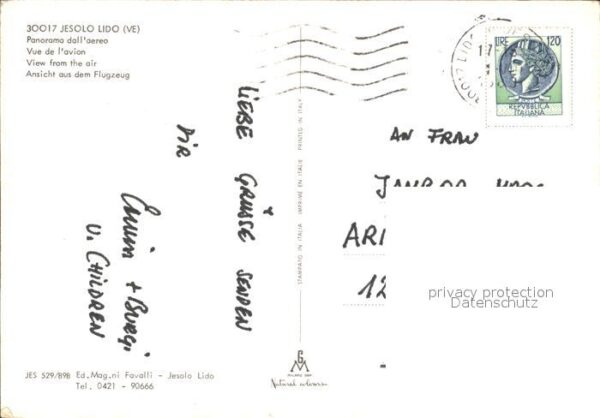 30017 JESOLO LIDO (VE)
Panorama dall'aereo
Vue de l'avion
View from the air
Ansicht aus dem Flugzeug
LIRE 120
REPVBBLICA
ITALIANA
30017 LIDO
17
LIEBE GRÜSSE SENDEN
DIR
+ BURGI
U. CHILDREN
STAMPATO IN ITALIA - IMPRIMÉ EN ITALIE - PRINTED IN ITALY
AN FRAU
ARI
12
privacy protection
Datenschutz
JES 529/898 Ed. Mag.ni Favalli - Jesolo Lido
Tel. 0421 - 90666
G
M
Natural colorcolor